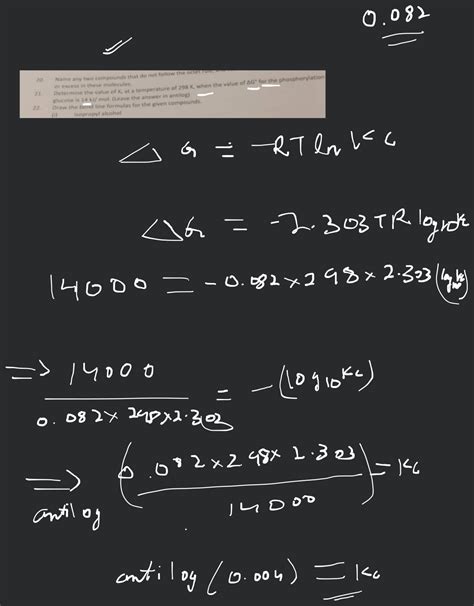 0.082
20. Name any two compounds that do not follow the octet rule,
or excess in these molecules.
21. Determine the value of Kc at a temperature of 298 K, when the value of ΔG° for the phosphorylation
glucose is 14 kJ/ mol. (Leave the answer in antilog)
22. Draw the bond line formulas for the given compounds.
(i) Isopropyl alcohol
△G = -RT ln Kc
△G = -2.303TR log10K
14000 = -0.082×298×2.303(log Kc)
=> 14000 / 0.082×298×2.303 = -(log10Kc)
=> antilog (0.082×298×2.303 / 14000) = Kc
antilog (0.004) = Kc